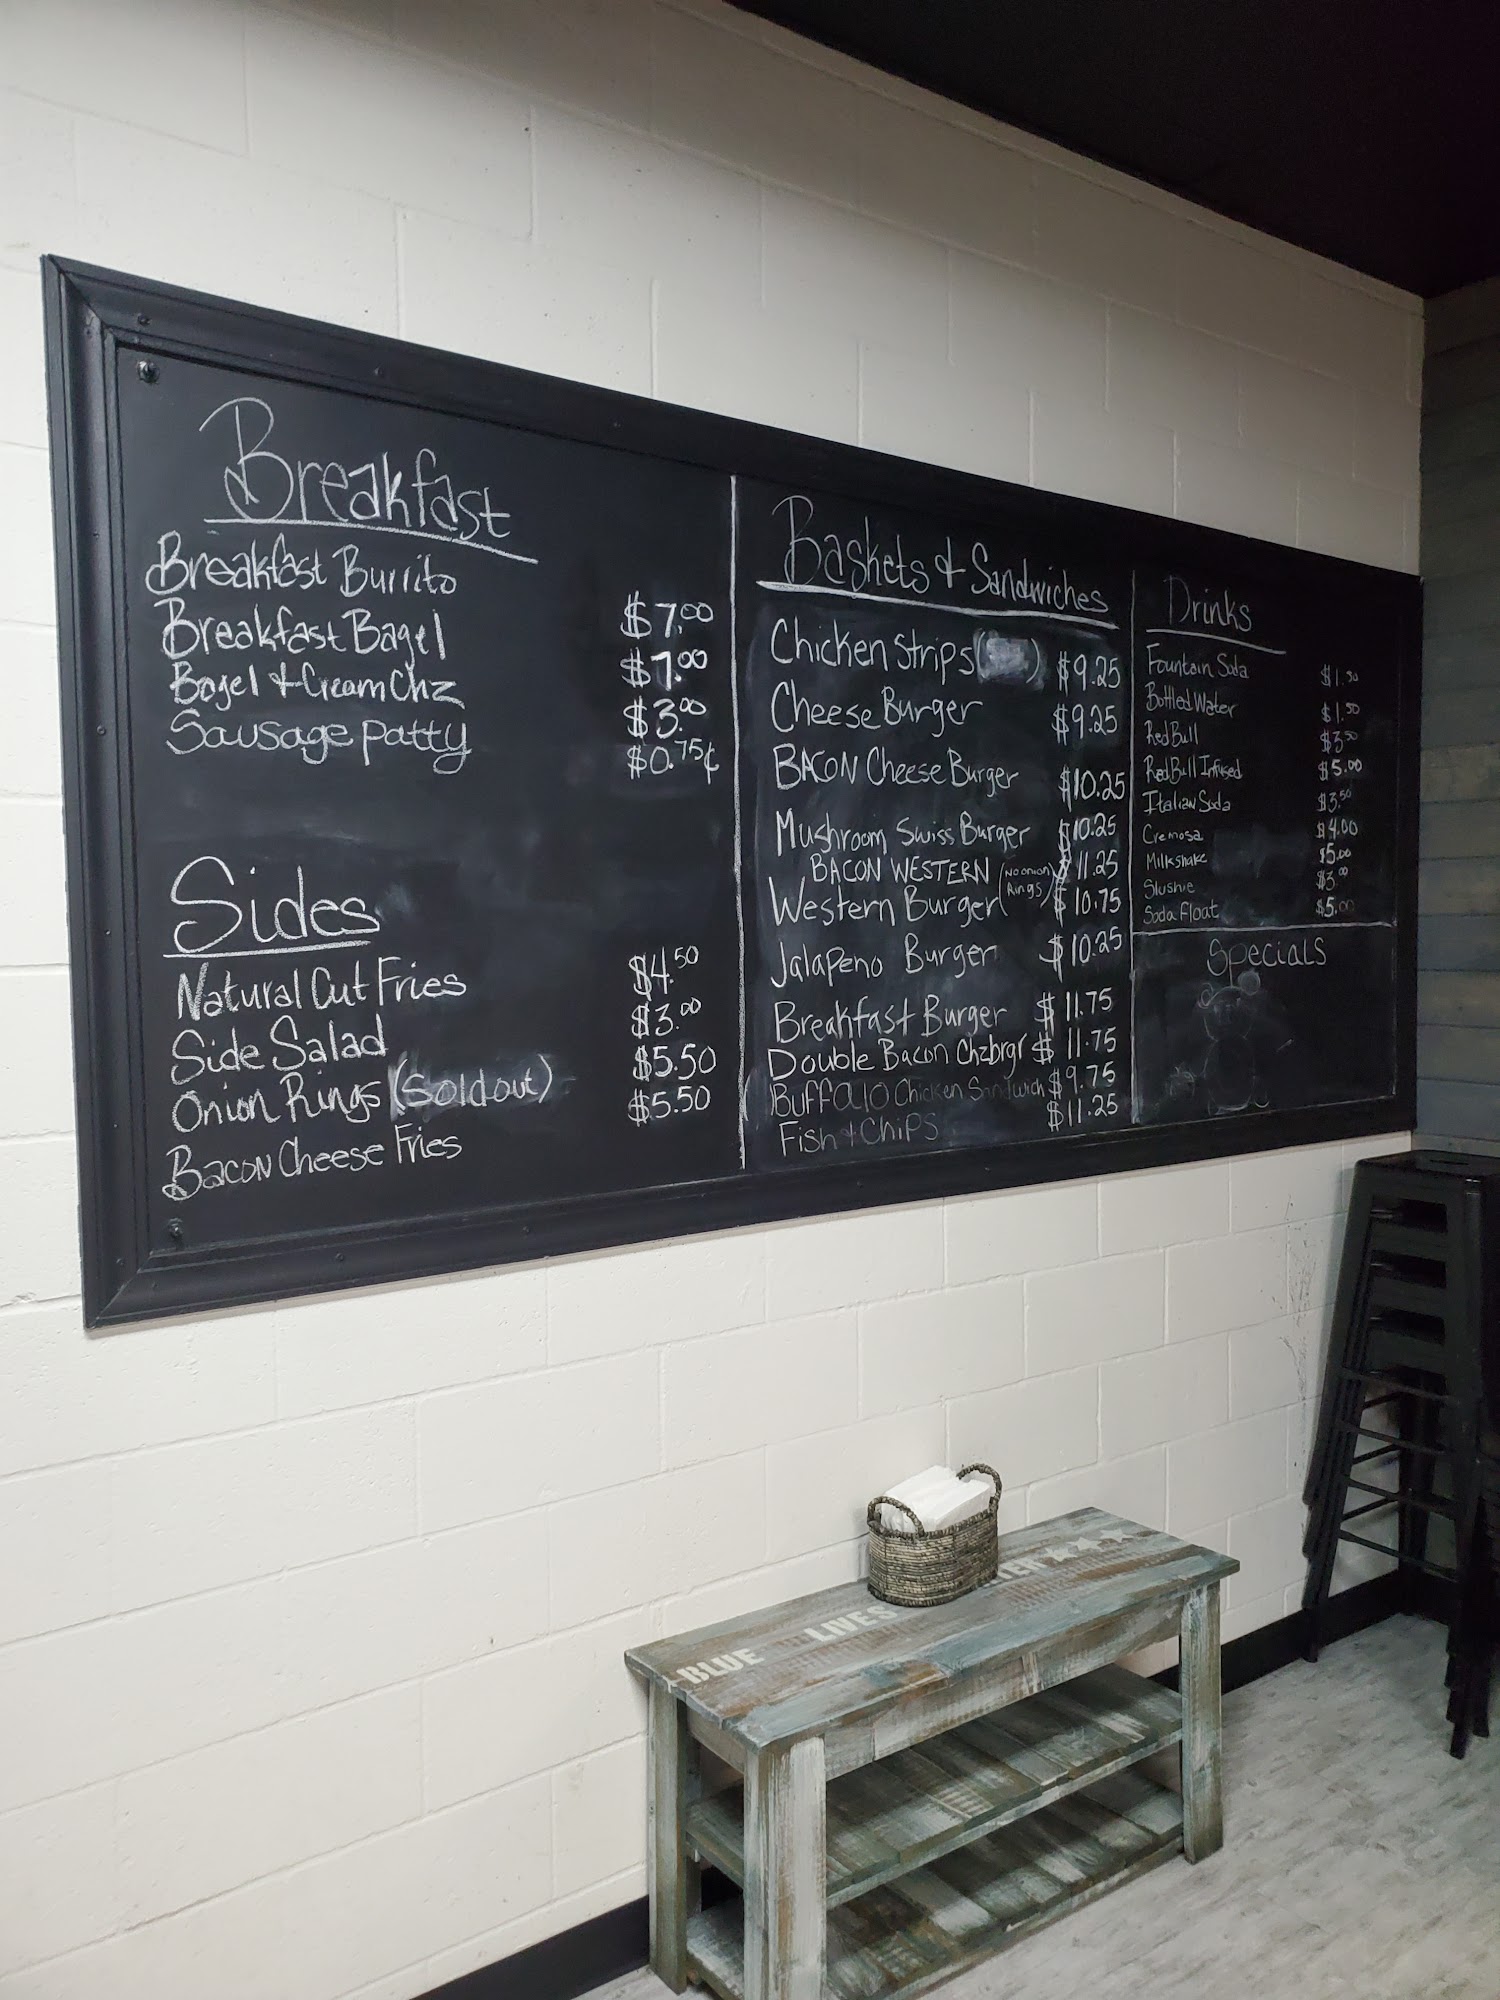 Breakfast
Breakfast Burrito $7.00
Breakfast Bagel $7.00
Bagel & Cream Chz $3.00
Sausage patty $0.75¢
Sides
Natural Cut Fries $4.50
Side Salad $3.00
Onion Rings (Sold out) $5.50
Bacon Cheese Fries $5.50
Baskets & Sandwiches
Chicken Strips ( ) $9.25
Cheese Burger $9.25
BACON Cheese Burger $10.25
Mushroom Swiss Burger $10.25
BACON WESTERN $11.25
Western Burger (No onion Rings) $10.75
Jalapeno Burger $10.25
Breakfast Burger $11.75
Double Bacon Chzbrgr $11.75
Buffalo Chicken Sandwich $9.75
Fish & Chips $11.25
Drinks
Fountain Soda $1.50
Bottled Water $1.50
Red Bull $3.50
Red Bull Infused $5.00
Italian Soda $3.50
Cremosa $4.00
Milkshake $5.00
Slushie $3.00
Soda Float $5.00
Specials
BLUE LIVES